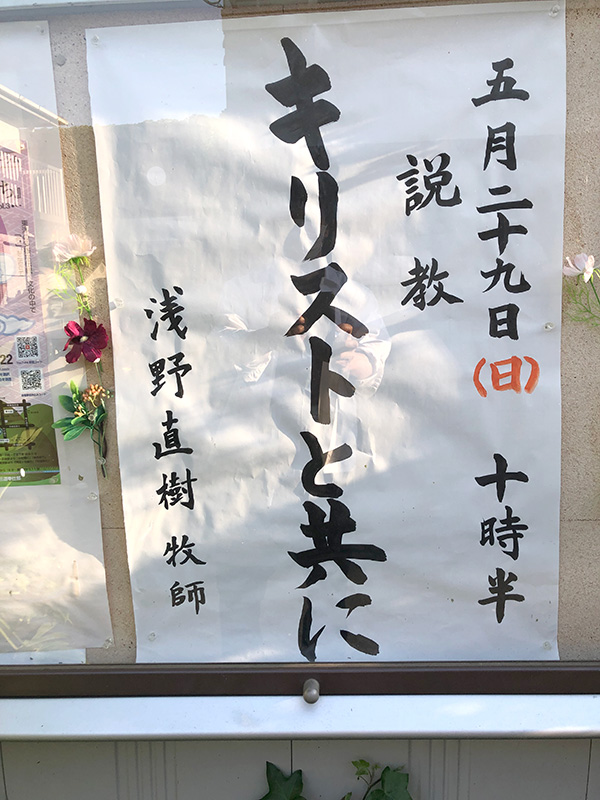 五月二十九日(日) 十時半
説教
キリストと共に
浅野直樹牧師
文化の中で
22